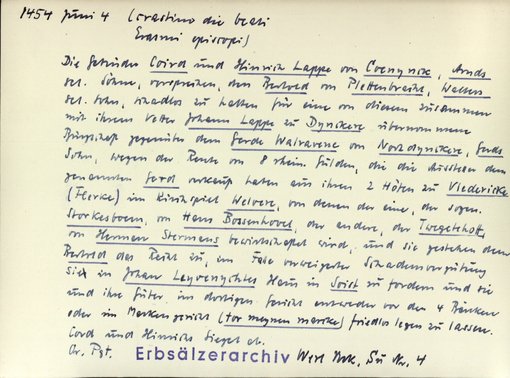 1454 Juni 4 (crastino die beati
Erasmi episcopi)
Die Gebrüder Coird und Hinrich Lappe von Coenynck, Arnds
sel. Söhne, versprechen, den Bertold von Plettenbracht,
sel. Sohn, schadlos zu halten für eine von diesem zusammen
mit ihrem Vetter Johann Lappe zu Dynckere übernommene
Bürgschaft gegenüber dem Gerde Walravene von Norddynckere, Gerds
Sohn, wegen der Rente von 8 rhein. Gulden, die die Aussteller dem
genannten Gerd verkauft haben aus ihren 2 Höfen zu Vledericke
(Flerke) im Kirchspiel Welvere, von denen der eine, der sogen.
Storkesboem, von Hans Bossenhovel, der andere, der Twegetehoff,
von Herman Stermans bewirtschaftet wird, und sie gestehen dem
Bertold das Recht zu, im Falle verweigerter Schadenvergütung
sie in Johan Leyvenychtes Haus in Soist zu fordern und sie
und ihre Güter im dortigen Gericht entweder vor den 4 Bänken
oder im Markengericht (tor meynen marcke) friedlos legen zu lassen.
Cord und Hinrichs Siegel ab.
Or. Pgt. Erbsälzerarchiv Werl Urk. Su Nr. 4